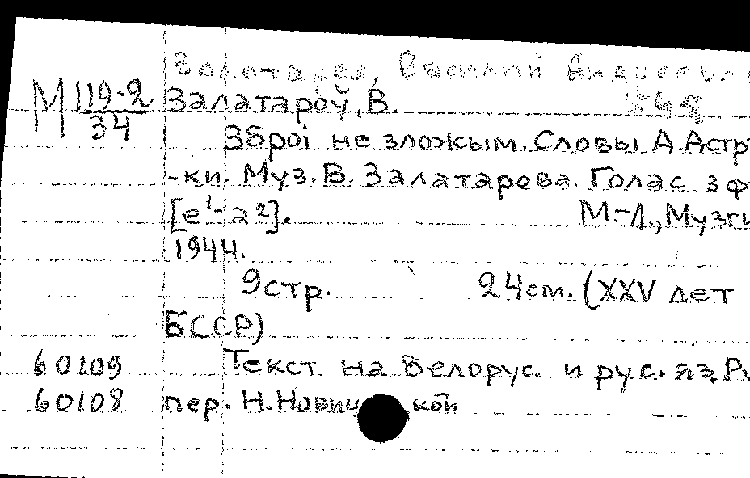 Золотарев, Василий Андреевич
М 119-2/34 Залатароў, В.
Зброі не зложым. Словы А. Астр
-ки. Муз. В. Залатарова. Голас з ф
[e¹-a²]. М-Л., Музги
1944.
9 стр. 24 см. (XXV лет
БССР)
60109 Текст на белорус. и рус. яз. Ру
60108 пер. Н. Нович кой